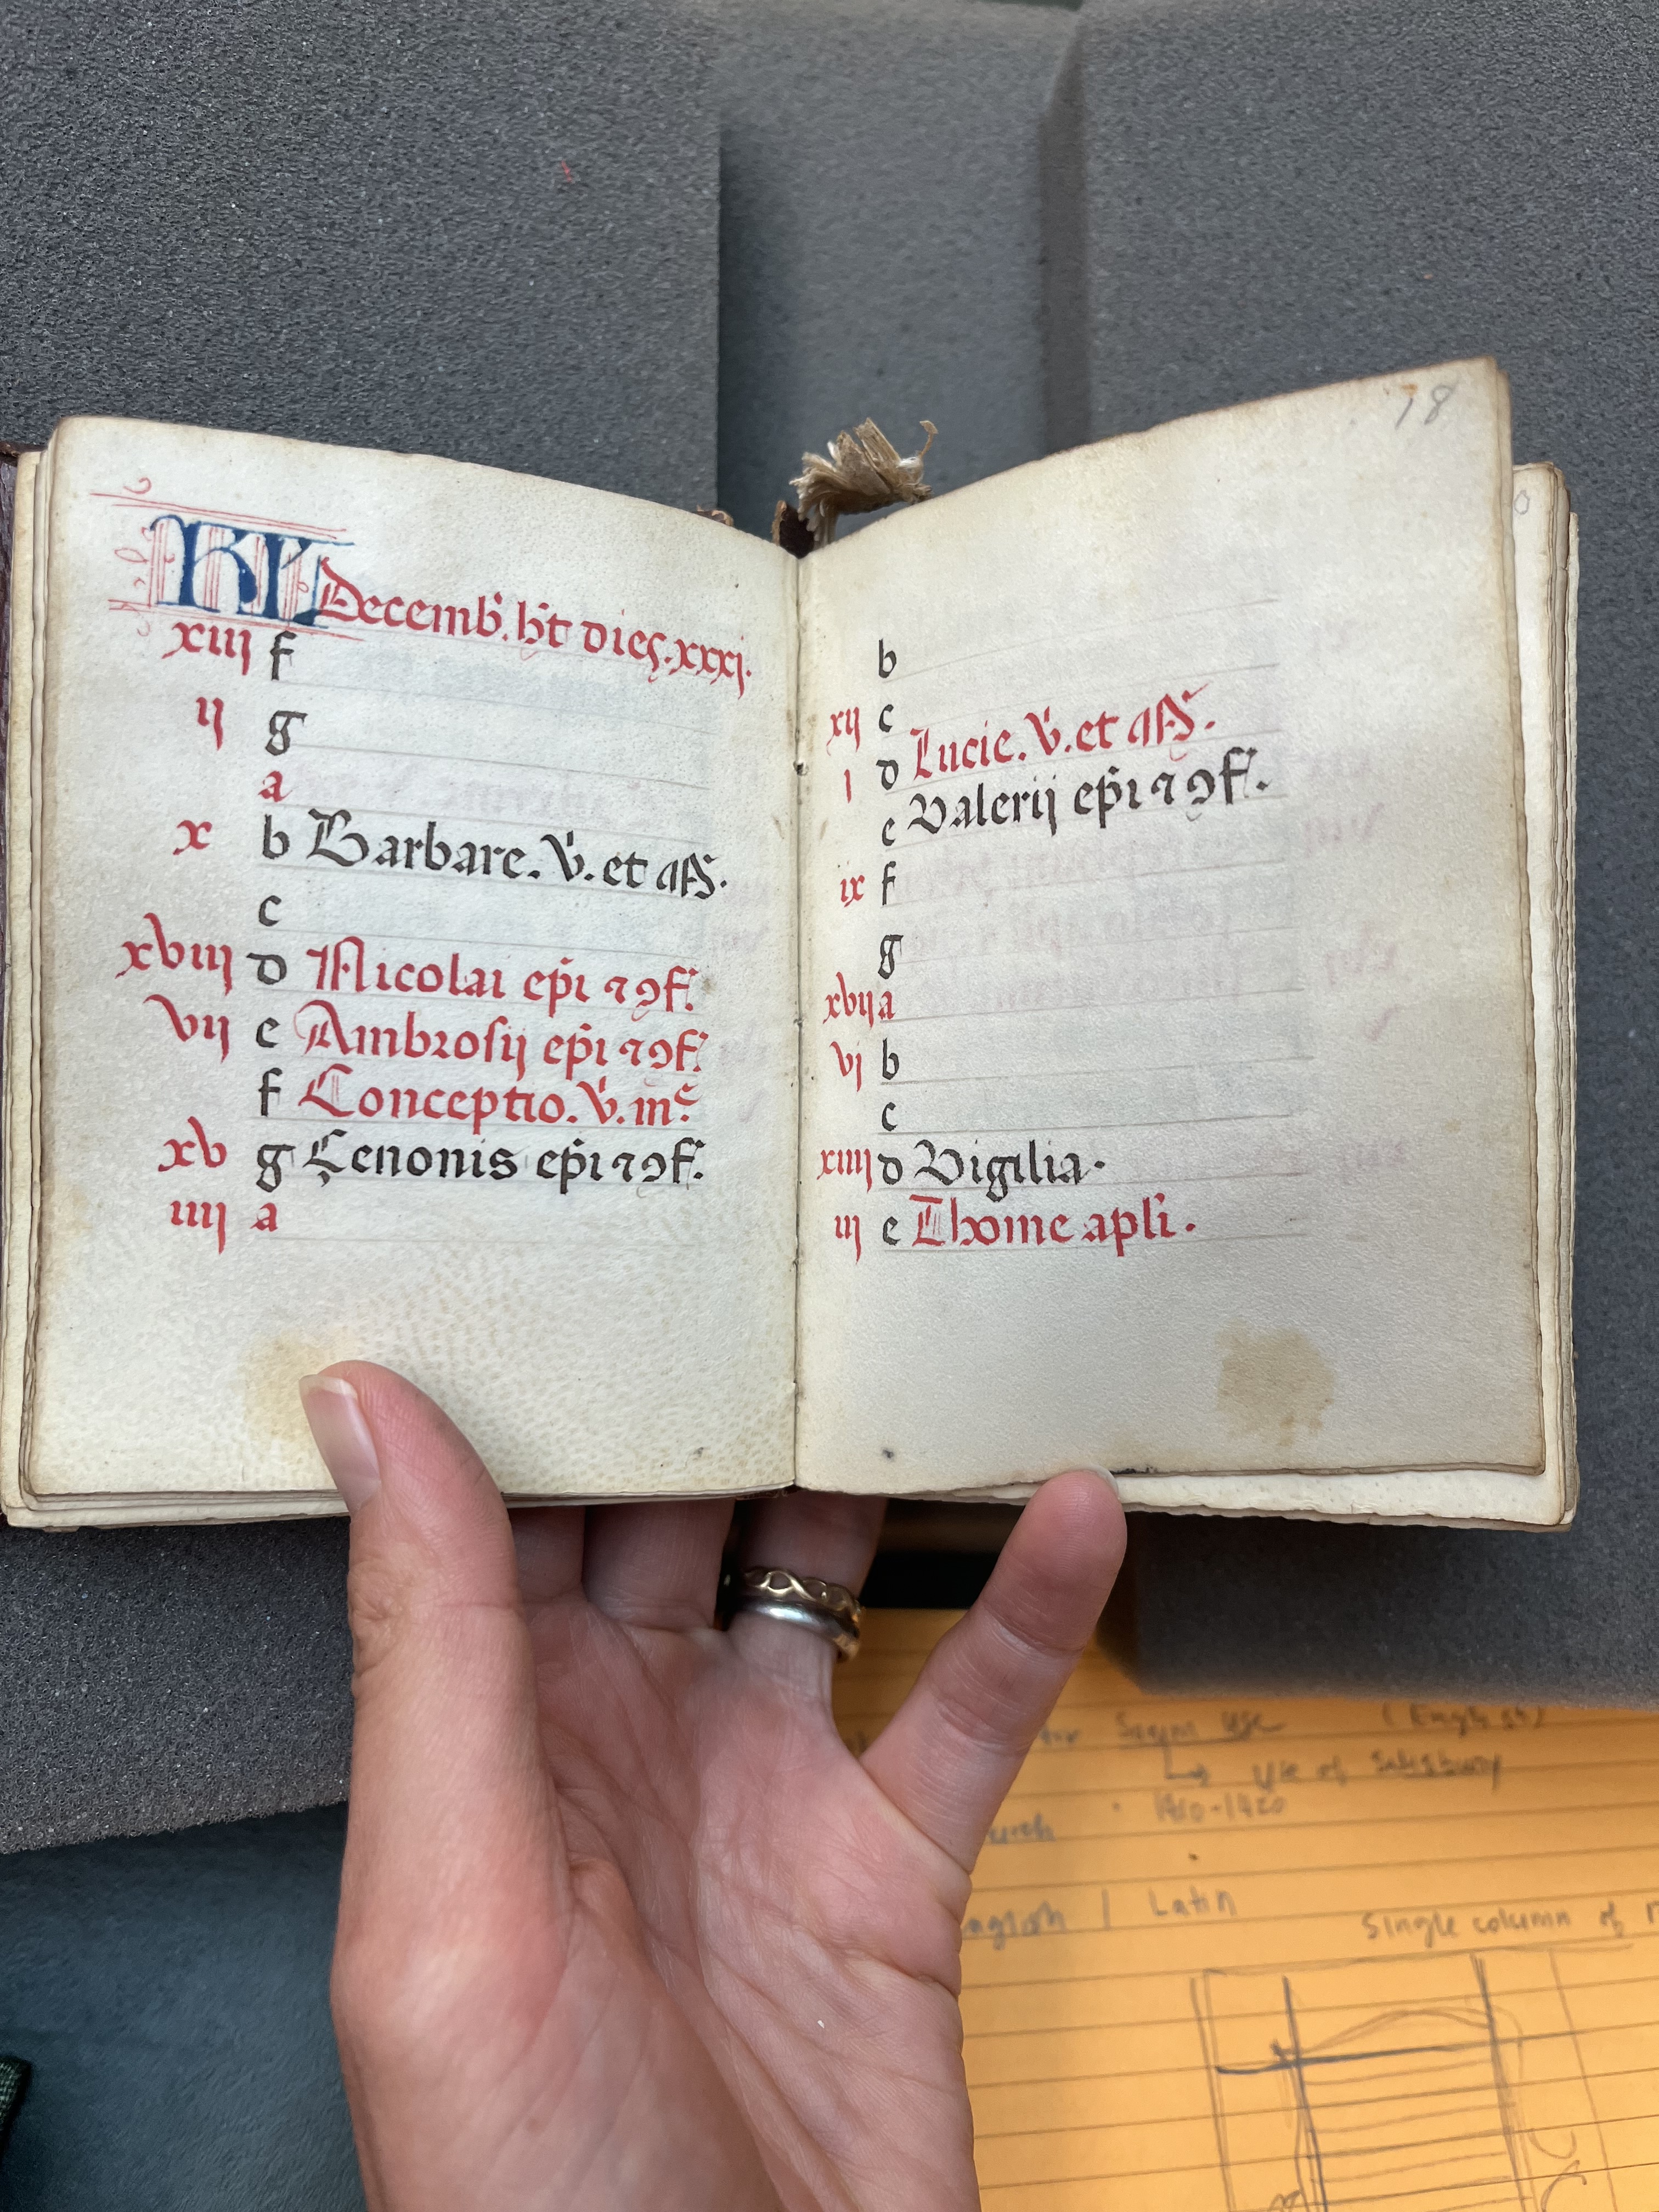 KL Decemb̄. h̄t dies. xxxj.
xiij f
ij g
a
x b Barbare. v̄. et m̄r̄.
c
xviij d Nicolai ep̄i ⁊ ꝯf.
vij e Ambrosij ep̄i ⁊ ꝯf.
f Conceptio. v̄. mͤ
xv g Çenonis ep̄i ⁊ ꝯf.
iiij a
18
b
xij c
i d Lucie. v̄. et m̄r̄.
e Valerij ep̄i ⁊ ꝯf.
ix f
g
xvij a
vj b
c
xiiij d Vigilia.
iij e Thome apl̄i.
Use (English)
↳ Use of Salisbury
1410-1420
English | Latin
Single column of